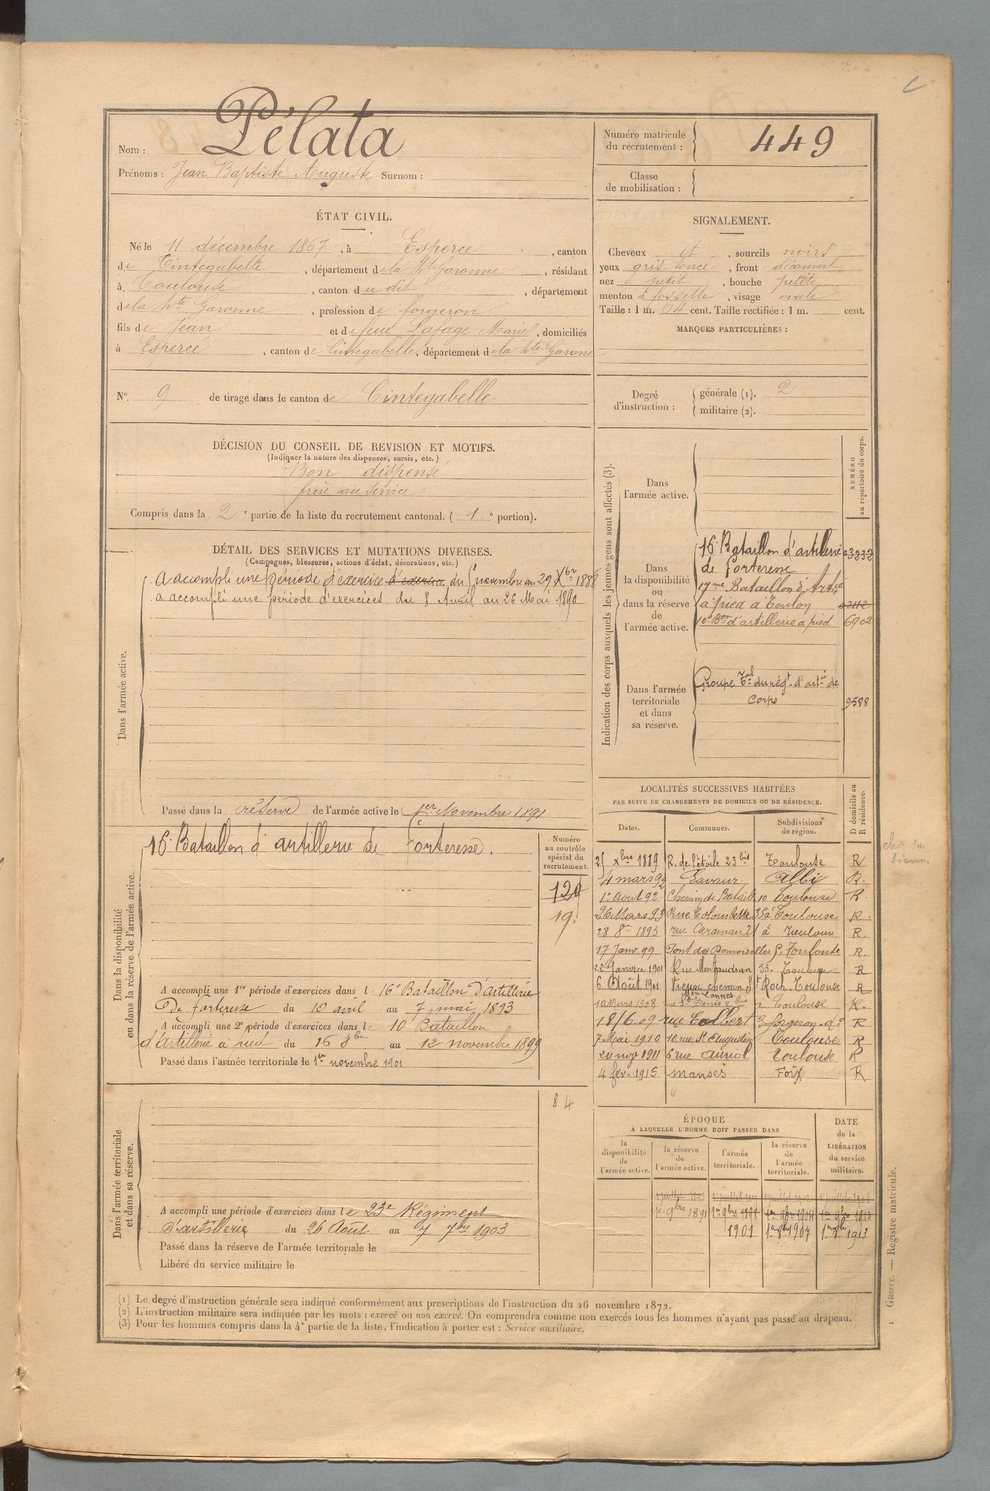 Nom : Pélata
Prénoms : Jean Baptiste Auguste Surnom :
Numéro matricule du recrutement : 449
Classe de mobilisation :
ÉTAT CIVIL.
Né le 11 décembre 1867, à Esperce, canton
de Cintegabelle, département de la Hte Garonne, résidant
à Toulouse, canton du dit, département
de la Hte Garonne, profession de forgeron
fils de Jean et de feue Lafage Marie, domiciliés
à Esperce, canton de Cintegabelle, département de la Hte Garonne
SIGNALEMENT.
Cheveux et, sourcils noirs
yeux gris foncé, front découvert
nez petit, bouche petite
menton à fossette, visage ovale
Taille : 1 m. 64 cent. Taille rectifiée : 1 m. cent.
MARQUES PARTICULIÈRES :
N° 9 de tirage dans le canton de Cintegabelle
Degré d'instruction : générale (1). 2
militaire (2).
DÉCISION DU CONSEIL DE REVISION ET MOTIFS.
(Indiquer la nature des dispenses, sursis, etc.)
Bon dispensé
frère au service
Compris dans la 2e partie de la liste du recrutement cantonal. (1e portion).
DÉTAIL DES SERVICES ET MUTATIONS DIVERSES.
(Campagnes, blessures, actions d'éclat, décorations, etc.)
Dans l'armée active.
A accompli une période d'exercice du 1 novembre au 29 Xbre 1888
a accompli une période d'exercices du 1 Avril au 26 Mai 1890
Passé dans la réserve de l'armée active le 1er Novembre 1891
Indication des corps auxquels les jeunes gens sont affectés (3).
NUMÉRO au répertoire du corps.
Dans l'armée active.
Dans la disponibilité ou dans la réserve de l'armée active.
16e Bataillon d'artillerie 3232
de forteresse
17me Bataillon d'Artie
à pied à Toulon 2112
10e Bon d'artillerie à pied 6902
Dans l'armée territoriale et dans sa réserve.
Groupe tal du régt d'artie de
Corps 9588
Dans la disponibilité ou dans la réserve de l'armée active.
16e Bataillon d'artillerie de Forteresse.
Numéro au contrôle spécial du recrutement.
129
19
A accompli une 1re période d'exercices dans le 16e Bataillon d'Artillerie
de forteresse du 10 avril au 7 mai 1893
A accompli une 2e période d'exercices dans le 10e Bataillon
d'Artillerie à pied du 16 8bre au 12 novembre 1899
Passé dans l'armée territoriale le 1er novembre 1901
LOCALITÉS SUCCESSIVES HABITÉES
PAR SUITE DE CHANGEMENTS DE DOMICILE OU DE RÉSIDENCE.
Dates. Communes. Subdivisions de région. D domicile ou R résidence.
25 Xbre 1889 R. de l'étoile 23 bis Toulouse R
4 mars 92 Lavaur Albi R.
1er Aout 92 Chemin de Bataille 10 Toulouse R
26 Mars 93 Rue Colombette à Toulouse R.
28 8bre 1895 rue Caraman 21 à Toulouse R.
17 Janv. 99 Pont des Demoiselles Toulouse R.
22 Janvier 1901 Rue Montaudran 53. Toulouse R
6 Août 1901 Vieux chemin St Roch. Toulouse R
10 Mars 1908 rue St Denis 2 bis Toulouse R.
18/6.09 rue Colbert 3 forgeron do R
7 Mai 1910 10 rue St Augustin Toulouse R
20 nov 1911 6 rue Auriol Toulouse R
4 fév. 1915 Manses Foix R
Dans l'armée territoriale et dans sa réserve.
84
A accompli une période d'exercices dans le 23e Régiment
d'artillerie du 26 Août au 7 7bre 1903
Passé dans la réserve de l'armée territoriale le
Libéré du service militaire le
ÉPOQUE
À LAQUELLE L'HOMME DOIT PASSER DANS
la disponibilité de l'armée active. la réserve de l'armée active. l'armée territoriale. la réserve de l'armée territoriale.
DATE de la LIBÉRATION du service militaire.
1er 9bre 1891
1901 1er 9bre 1907
(1) Le degré d'instruction générale sera indiqué conformément aux prescriptions de l'instruction du 26 novembre 1872.
(2) L'instruction militaire sera indiquée par les mots : exercé ou non exercé. On comprendra comme non exercés tous les hommes n'ayant pas passé au drapeau.
(3) Pour les hommes compris dans la 4e partie de la liste, l'indication à porter est : Service auxiliaire.
Guerre. — Registre matricule.